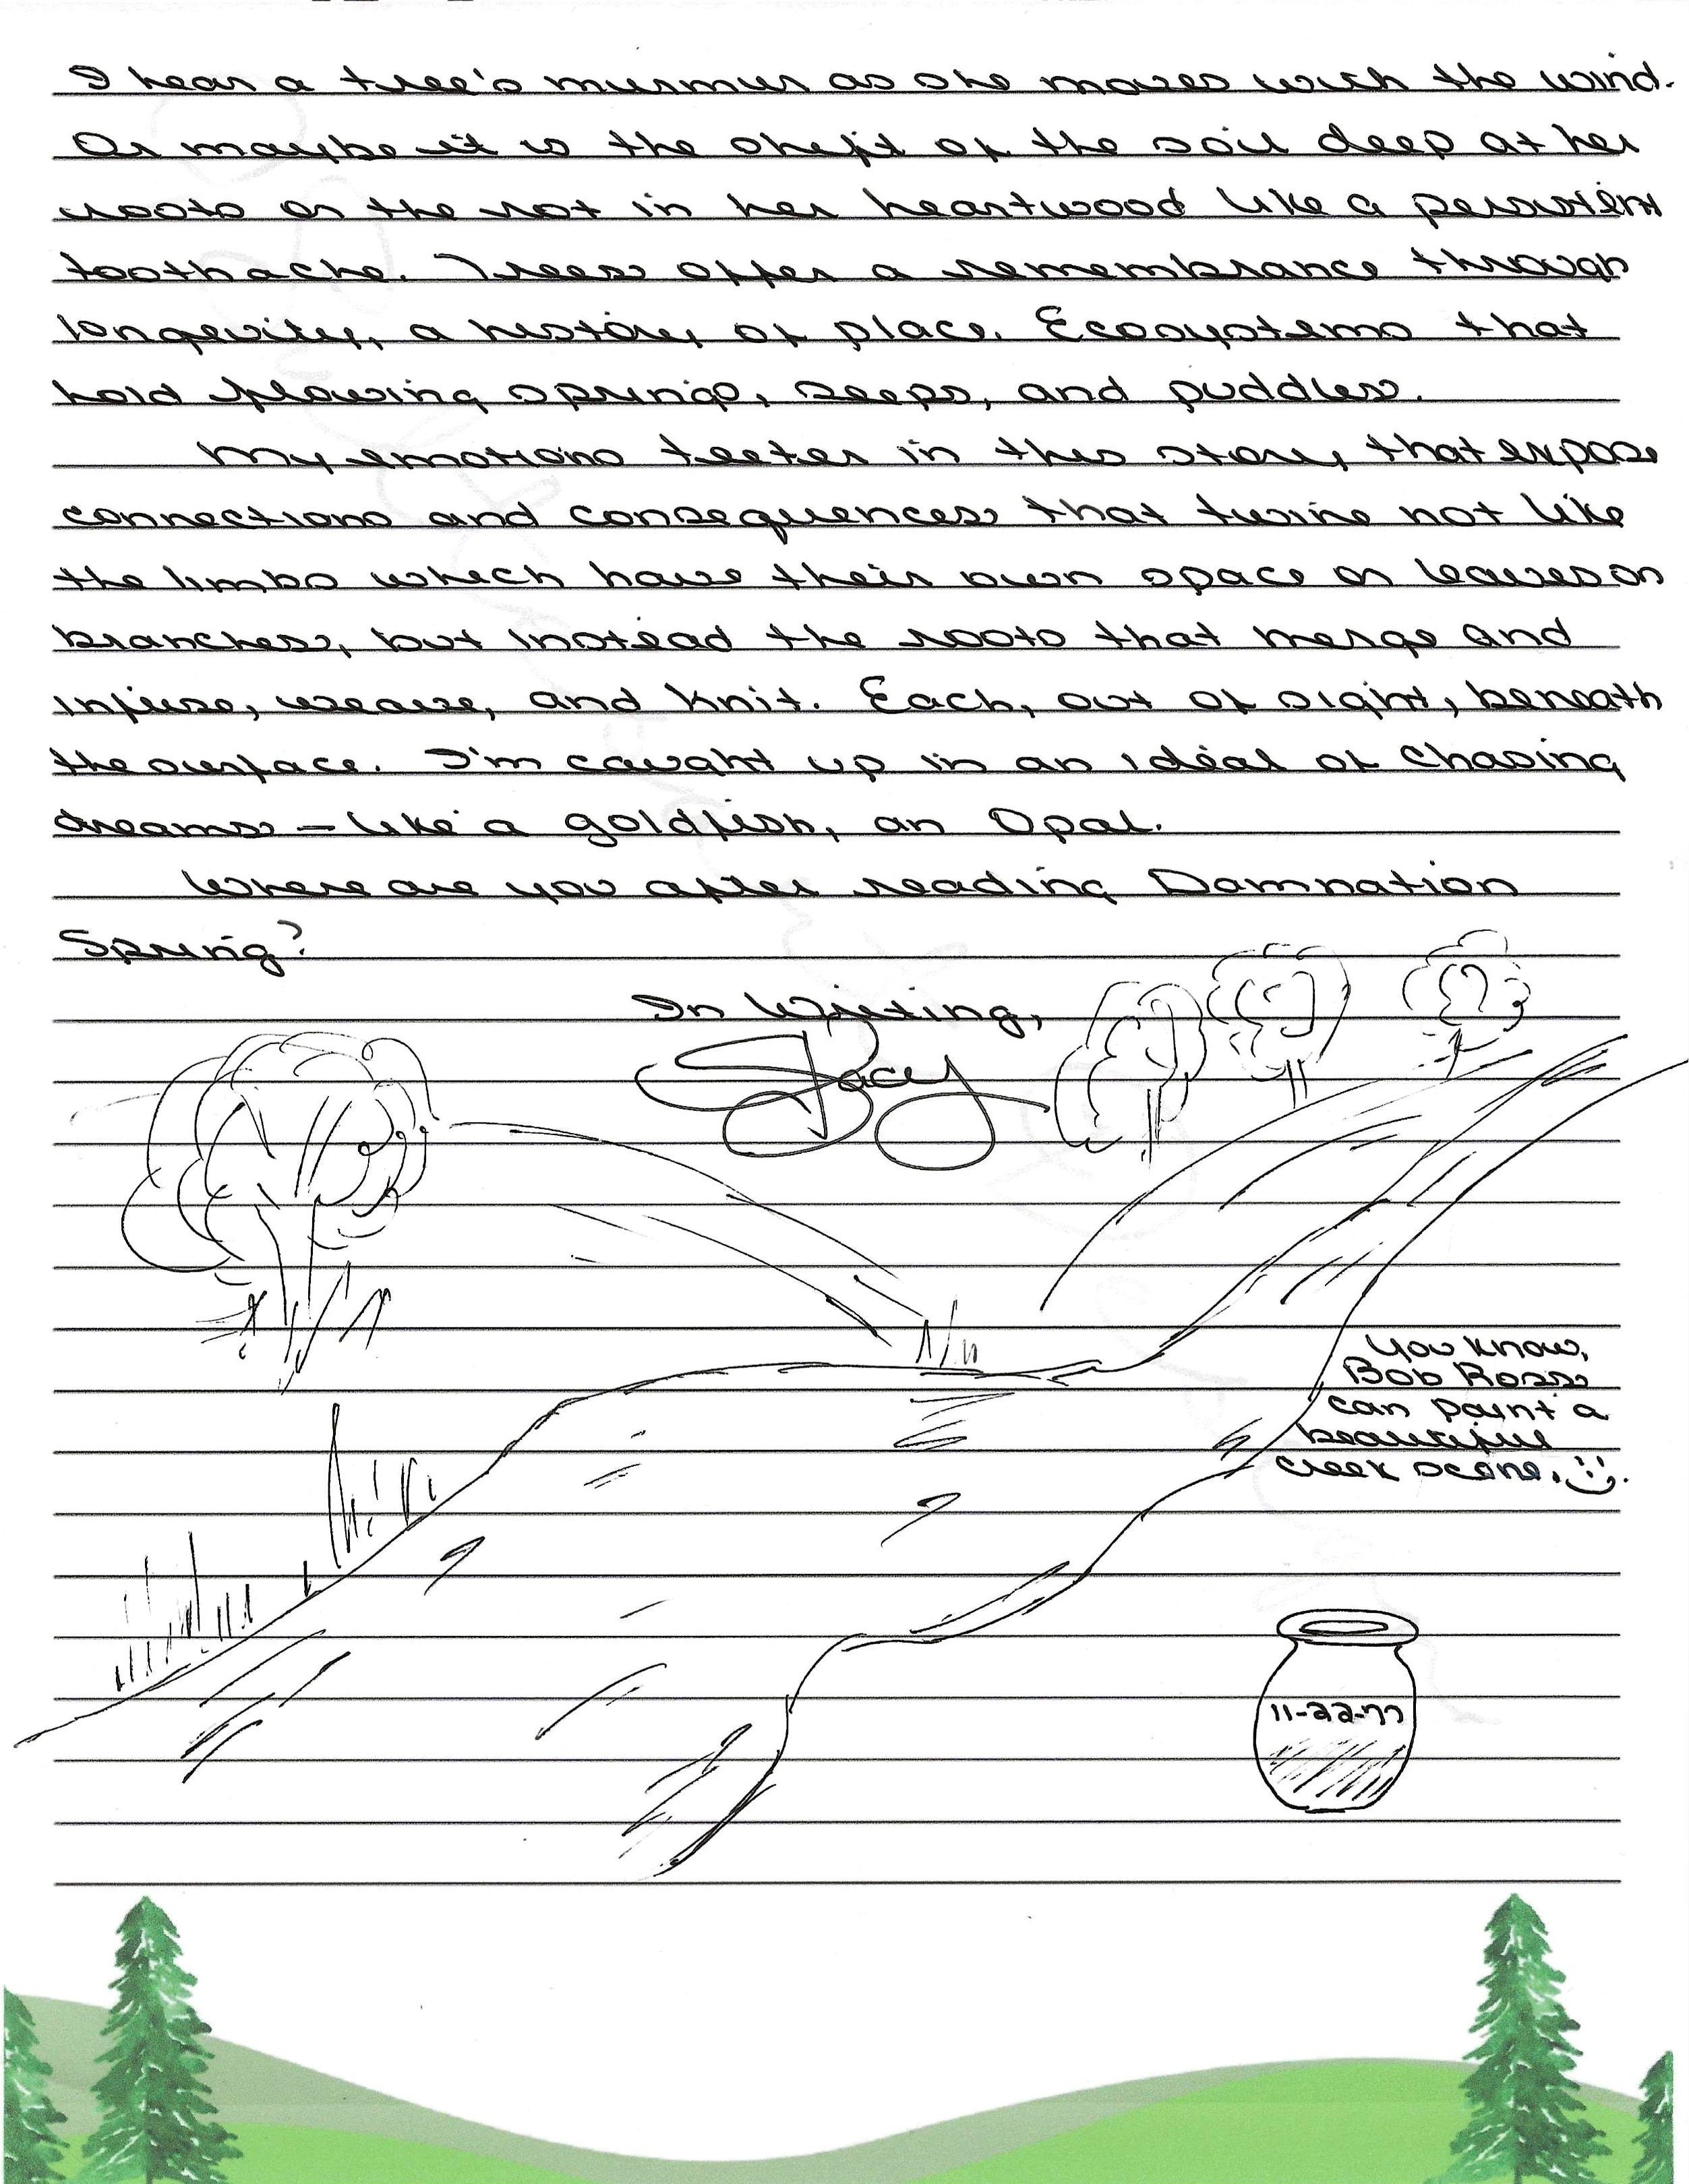 I hear a tree's murmur as she moves with the wind.
Or maybe it is the shift of the soil deep at her
roots or the rot in her heartwood like a persistent
toothache. Trees offer a remembrance through
longevity, a history of place. Ecosystems that
hold flowing springs, seeps, and puddles.
My emotions teeter in this story that expose
connections and consequences that twine not like
the limbs which have their own space or leaves on
branches, but instead the roots that merge and
infuse, weave, and knit. Each, out of sight, beneath
the surface. I'm caught up in an ideal of chasing
dreams – like a goldfish, an Opal.
Where are you after reading Damnation
Spring?
In Writing,
Stacy
You know,
Bob Ross
can paint a
beautiful
creek scene.
11-22-77